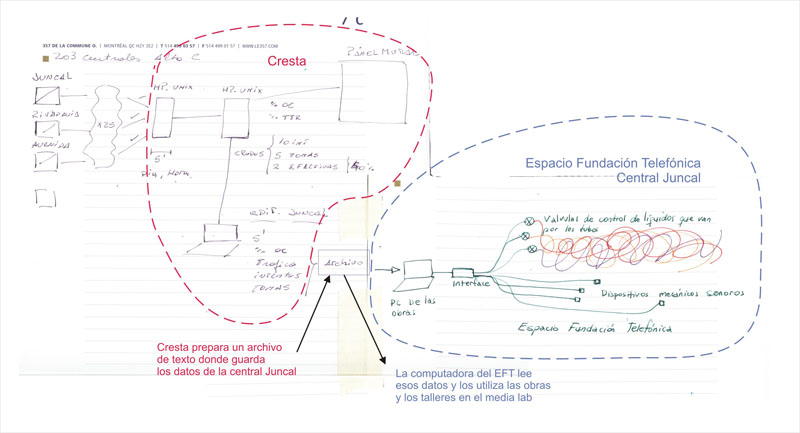 357 DE LA COMMUNE O. | MONTRÉAL QC H2Y 2E2 | T 514 499 03 57 | F 514 499 01 57 | WWW.LE357.COM
203 centrales
Cresta
PANEL MURAL
JUNCAL
HP. UNIX
HP. UNIX
X25
RIVADAVIA
AVENIDA
% OC
% TTR
CRUDOS
10 INT
5 TOMAS
2 EFECTIVAS
40%
5'
Dia, Hora
EDIF. JUNCAL
5'
% OC
Grafica
INTENTOS
TOMAS
Archivo
Espacio Fundación Telefónica
Central Juncal
Valvulas de control de líquidos que van
por los tubos
Interface
PC de las
obras
Dispositivos mecánicos sonoros
Espacio Fundación Telefónica
Cresta prepara un archivo
de texto donde guarda
los datos de la central Juncal
La computadora del EFT lee
esos datos y los utiliza las obras
y los talleres en el media lab